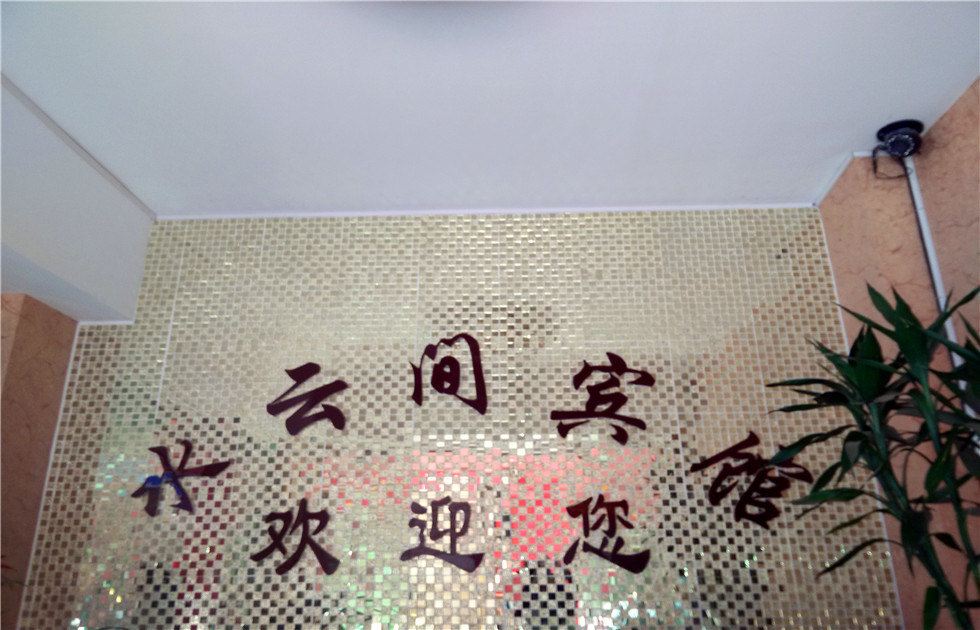 水云间宾馆
欢迎您